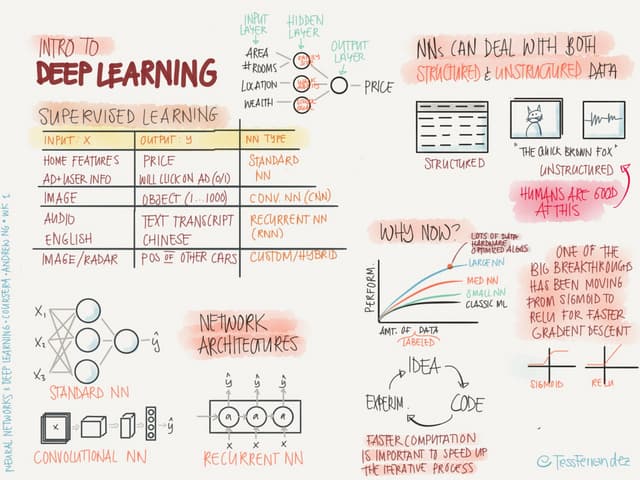 INTRO TO
DEEP LEARNING
INPUT LAYER
HIDDEN LAYER
OUTPUT LAYER
AREA
#ROOMS
LOCATION
WEALTH
PRICE
SUPERVISED LEARNING
INPUT: X OUTPUT: Y NN TYPE
HOME FEATURES PRICE STANDARD
AD+USER INFO WILL CLICK ON AD (0/1) NN
IMAGE OBJECT (1...1000) CONV. NN (CNN)
AUDIO TEXT TRANSCRIPT RECURRENT NN
ENGLISH CHINESE (RNN)
IMAGE/RADAR POS OF OTHER CARS CUSTOM/HYBRID
X1
X2
X3
ŷ
STANDARD NN
NETWORK
ARCHITECTURES
X
ŷ
CONVOLUTIONAL NN
ŷ ŷ ŷ
a a a
x x x
RECURRENT NN
NNs CAN DEAL WITH BOTH
STRUCTURED & UNSTRUCTURED DATA
STRUCTURED
"THE QUICK BROWN FOX"
UNSTRUCTURED
HUMANS ARE GOOD
AT THIS
WHY NOW?
LOTS OF DATA
HARDWARE
OPTIMIZED ALGOS
LARGE NN
MED NN
SMALL NN
CLASSIC ML
PERFORM.
AMT. OF DATA
LABELED
IDEA
CODE
EXPERIM.
FASTER COMPUTATION
IS IMPORTANT TO SPEED UP
THE ITERATIVE PROCESS
ONE OF THE
BIG BREAKTHROUGHS
HAS BEEN MOVING
FROM SIGMOID TO
RELU FOR FASTER
GRADIENT DESCENT
SIGMOID
RELU
@TessFernandez
NEURAL NETWORKS & DEEP LEARNING · COURSERA · ANDREW NG · WK 1